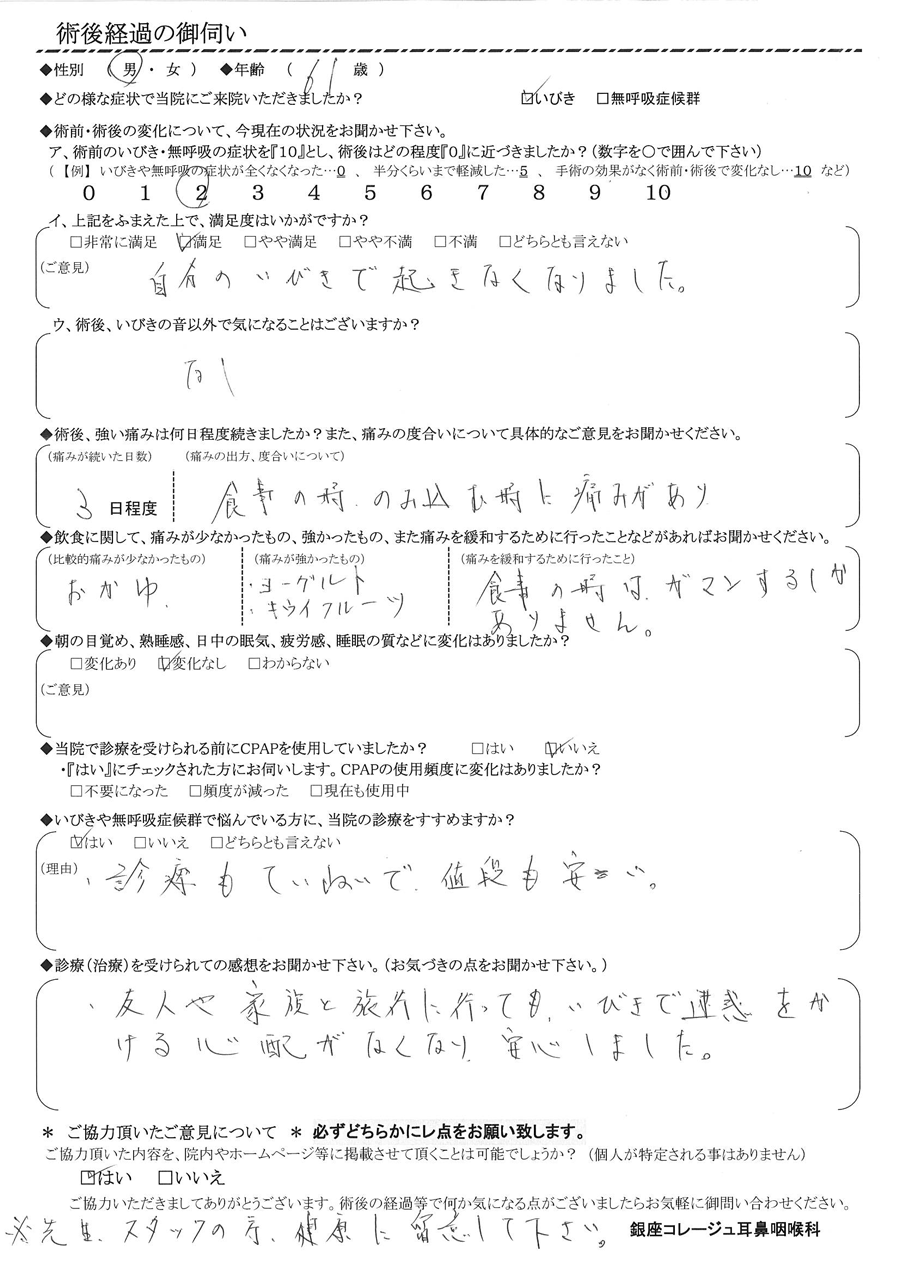 術後経過の御伺い
◆性別 （ 男 ・ 女 ） ◆年齢 （ 61 歳 ）
◆どの様な症状で当院にご来院いただきましたか？ ☑いびき □無呼吸症候群
◆術前・術後の変化について、今現在の状況をお聞かせ下さい。
ア、術前のいびき・無呼吸の症状を『10』とし、術後はどの程度『0』に近づきましたか？（数字を〇で囲んで下さい）
（ 【例】 いびきや無呼吸の症状が全くなくなった…0 、 半分くらいまで軽減した…5 、 手術の効果がなく術前・術後で変化なし…10 など）
0 1 2 3 4 5 6 7 8 9 10
イ、上記をふまえた上で、満足度はいかがですか？
□非常に満足 ☑満足 □やや満足 □やや不満 □不満 □どちらとも言えない
（ご意見） 自分のいびきで起きなくなりました。
ウ、術後、いびきの音以外で気になることはございますか？
なし
◆術後、強い痛みは何日程度続きましたか？また、痛みの度合いについて具体的なご意見をお聞かせください。
（痛みが続いた日数） （痛みの出方、度合いについて）
3 日程度 食事の時、のみ込む時に痛みがあり
◆飲食に関して、痛みが少なかったもの、強かったもの、また痛みを緩和するために行ったことなどがあればお聞かせください。
（比較的痛みが少なかったもの） （痛みが強かったもの） （痛みを緩和するために行ったこと）
おかゆ、 ・ヨーグルト 食事の時は、ガマンするしか
・キウイフルーツ ありません。
◆朝の目覚め、熟睡感、日中の眠気、疲労感、睡眠の質などに変化はありましたか？
□変化あり ☑変化なし □わからない
（ご意見）
◆当院で診療を受けられる前にCPAPを使用していましたか？ □はい ☑いいえ
・『はい』にチェックされた方にお伺いします。CPAPの使用頻度に変化はありましたか？
□不要になった □頻度が減った □現在も使用中
◆いびきや無呼吸症候群で悩んでいる方に、当院の診療をすすめますか？
☑はい □いいえ □どちらとも言えない
（理由） ・診療もていねいで、値段も安い。
◆診療（治療）を受けられての感想をお聞かせ下さい。（お気づきの点をお聞かせ下さい。）
・友人や家族と旅行に行っても、いびきで迷惑をか
ける心配がなくなり、安心しました。
＊ ご協力頂いたご意見について ＊ 必ずどちらかにレ点をお願い致します。
ご協力頂いた内容を、院内やホームページ等に掲載させて頂くことは可能でしょうか？ （個人が特定される事はありません）
☑はい □いいえ
ご協力いただきましてありがとうございます。術後の経過等で何か気になる点がございましたらお気軽に御問い合わせください。
※先生、スタッフの方、健康に留意して下さい。 銀座コレージュ耳鼻咽喉科